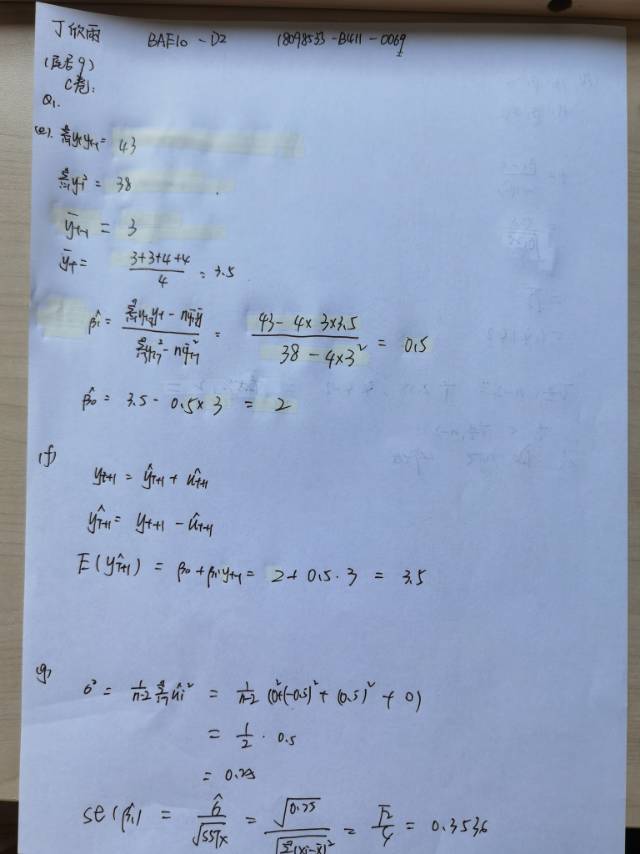 丁欣雨 BAF10 - D2 18098533-B411-0069
C卷:
Q1.
(e). Σ yt yt-1 = 43
Σ yt-1² = 38
ȳt-1 = 3
ȳt = (3+3+4+4)/4 = 3.5
β̂1 = (Σ yt-1 yt - nȳȳ)/(Σ yt-1² - nȳt-1²) = (43 - 4×3×3.5)/(38 - 4×3²) = 0.5
β̂0 = 3.5 - 0.5×3 = 2
(f) yt+1 = ŷt+1 + ût+1
ŷt+1 = yt+1 - ût+1
E(ŷt+1) = β0 + β1yt-1 = 2 + 0.5·3 = 3.5
(g) σ̂² = 1/(n-2) Σ ûi² = 1/(n-2) (0²+(-0.5)² + (0.5)² + 0)
= 1/2 · 0.5
= 0.25
se(β̂1) = σ̂/√SSTx = √0.25/√Σ(xi-x̄)² = √2/4 = 0.3536